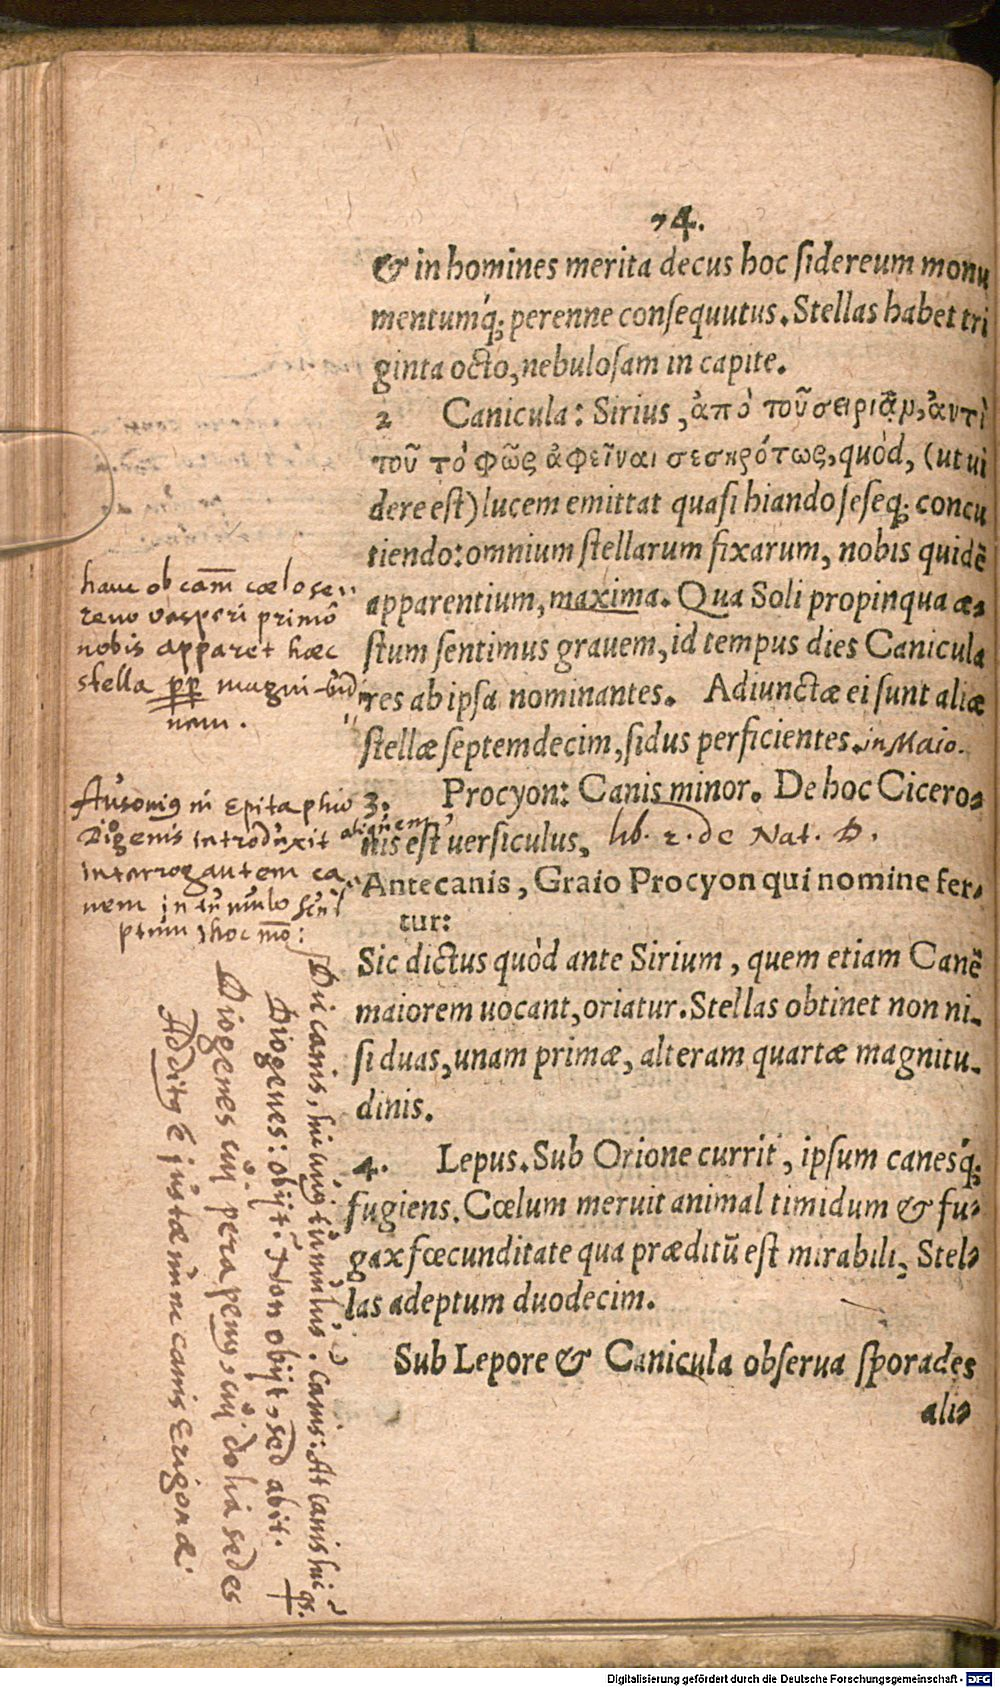 74.
& in homines merita decus hoc ſidereum monu
mentumq́; perenne conſequutus. Stellas habet tri
ginta octo, nebuloſam in capite.
2 Canicula: Sirius, ἀπὸ τοῦ σειριᾷν, ἀντὶ
τοῦ τὸ φῶς ἀφεῖναι σεσηρότως, quòd, (ut ui
dere eſt) lucem emittat quaſi hiando ſeſeq; concu
tiendo: omnium ſtellarum fixarum, nobis quidē
apparentium, maxima. Qua Soli propinqua æ-
ſtum ſentimus grauem, id tempus dies Canicula
res ab ipſa nominantes. Adiunctæ ei ſunt aliæ
ſtellæ ſeptemdecim, ſidus perficientes. in Maio.
3. Procyon: Canis minor. De hoc Cicero-
nis eſt uerſiculus, lib. 2. de Nat. D.
Antecanis, Graio Procyon qui nomine fer-
tur:
Sic dictus quòd ante Sirium, quem etiam Canē
maiorem uocant, oriatur. Stellas obtinet non ni-
ſi duas, unam primæ, alteram quartæ magnitu-
dinis.
4. Lepus. Sub Orione currit, ipſum canesq́;
fugiens. Cœlum meruit animal timidum & fu-
gax fœcunditate qua præditū eſt mirabili, Stel-
las adeptum duodecim.
Sub Lepore & Canicula obſerua ſporades
ali-
hanc ob cam̄ cælo se-
reno vesperi primō
nobis apparet hæc
stella pp magni-tudi
nem.
Ausonius in Epitaphio
Diogenis introduxit aliquem
interrogantem ca-
nem in tumulo scul
ptum hoc mō:
Dic canis, hic cuius tumulus. Canis: At canis hic
Diogenes: obijt. Non obijt, sed abit.
Diogenes cui pera penus, cui dolia sedes